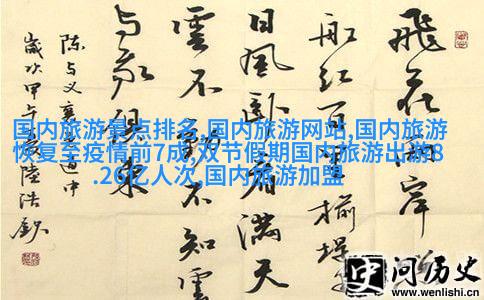 飛花兩岸
船紅百里榆堤
日風卧看滿天
雲不動不知雲
与我俱東
陈与义襄邑道中
歲次甲午夏陸浩欽
国内旅游景点排名,国内旅游网站,国内旅游
恢复至疫情前7成,双节假期国内旅游出游8
.26亿人次,国内旅游加盟
问历史
www.wenlishi.cn